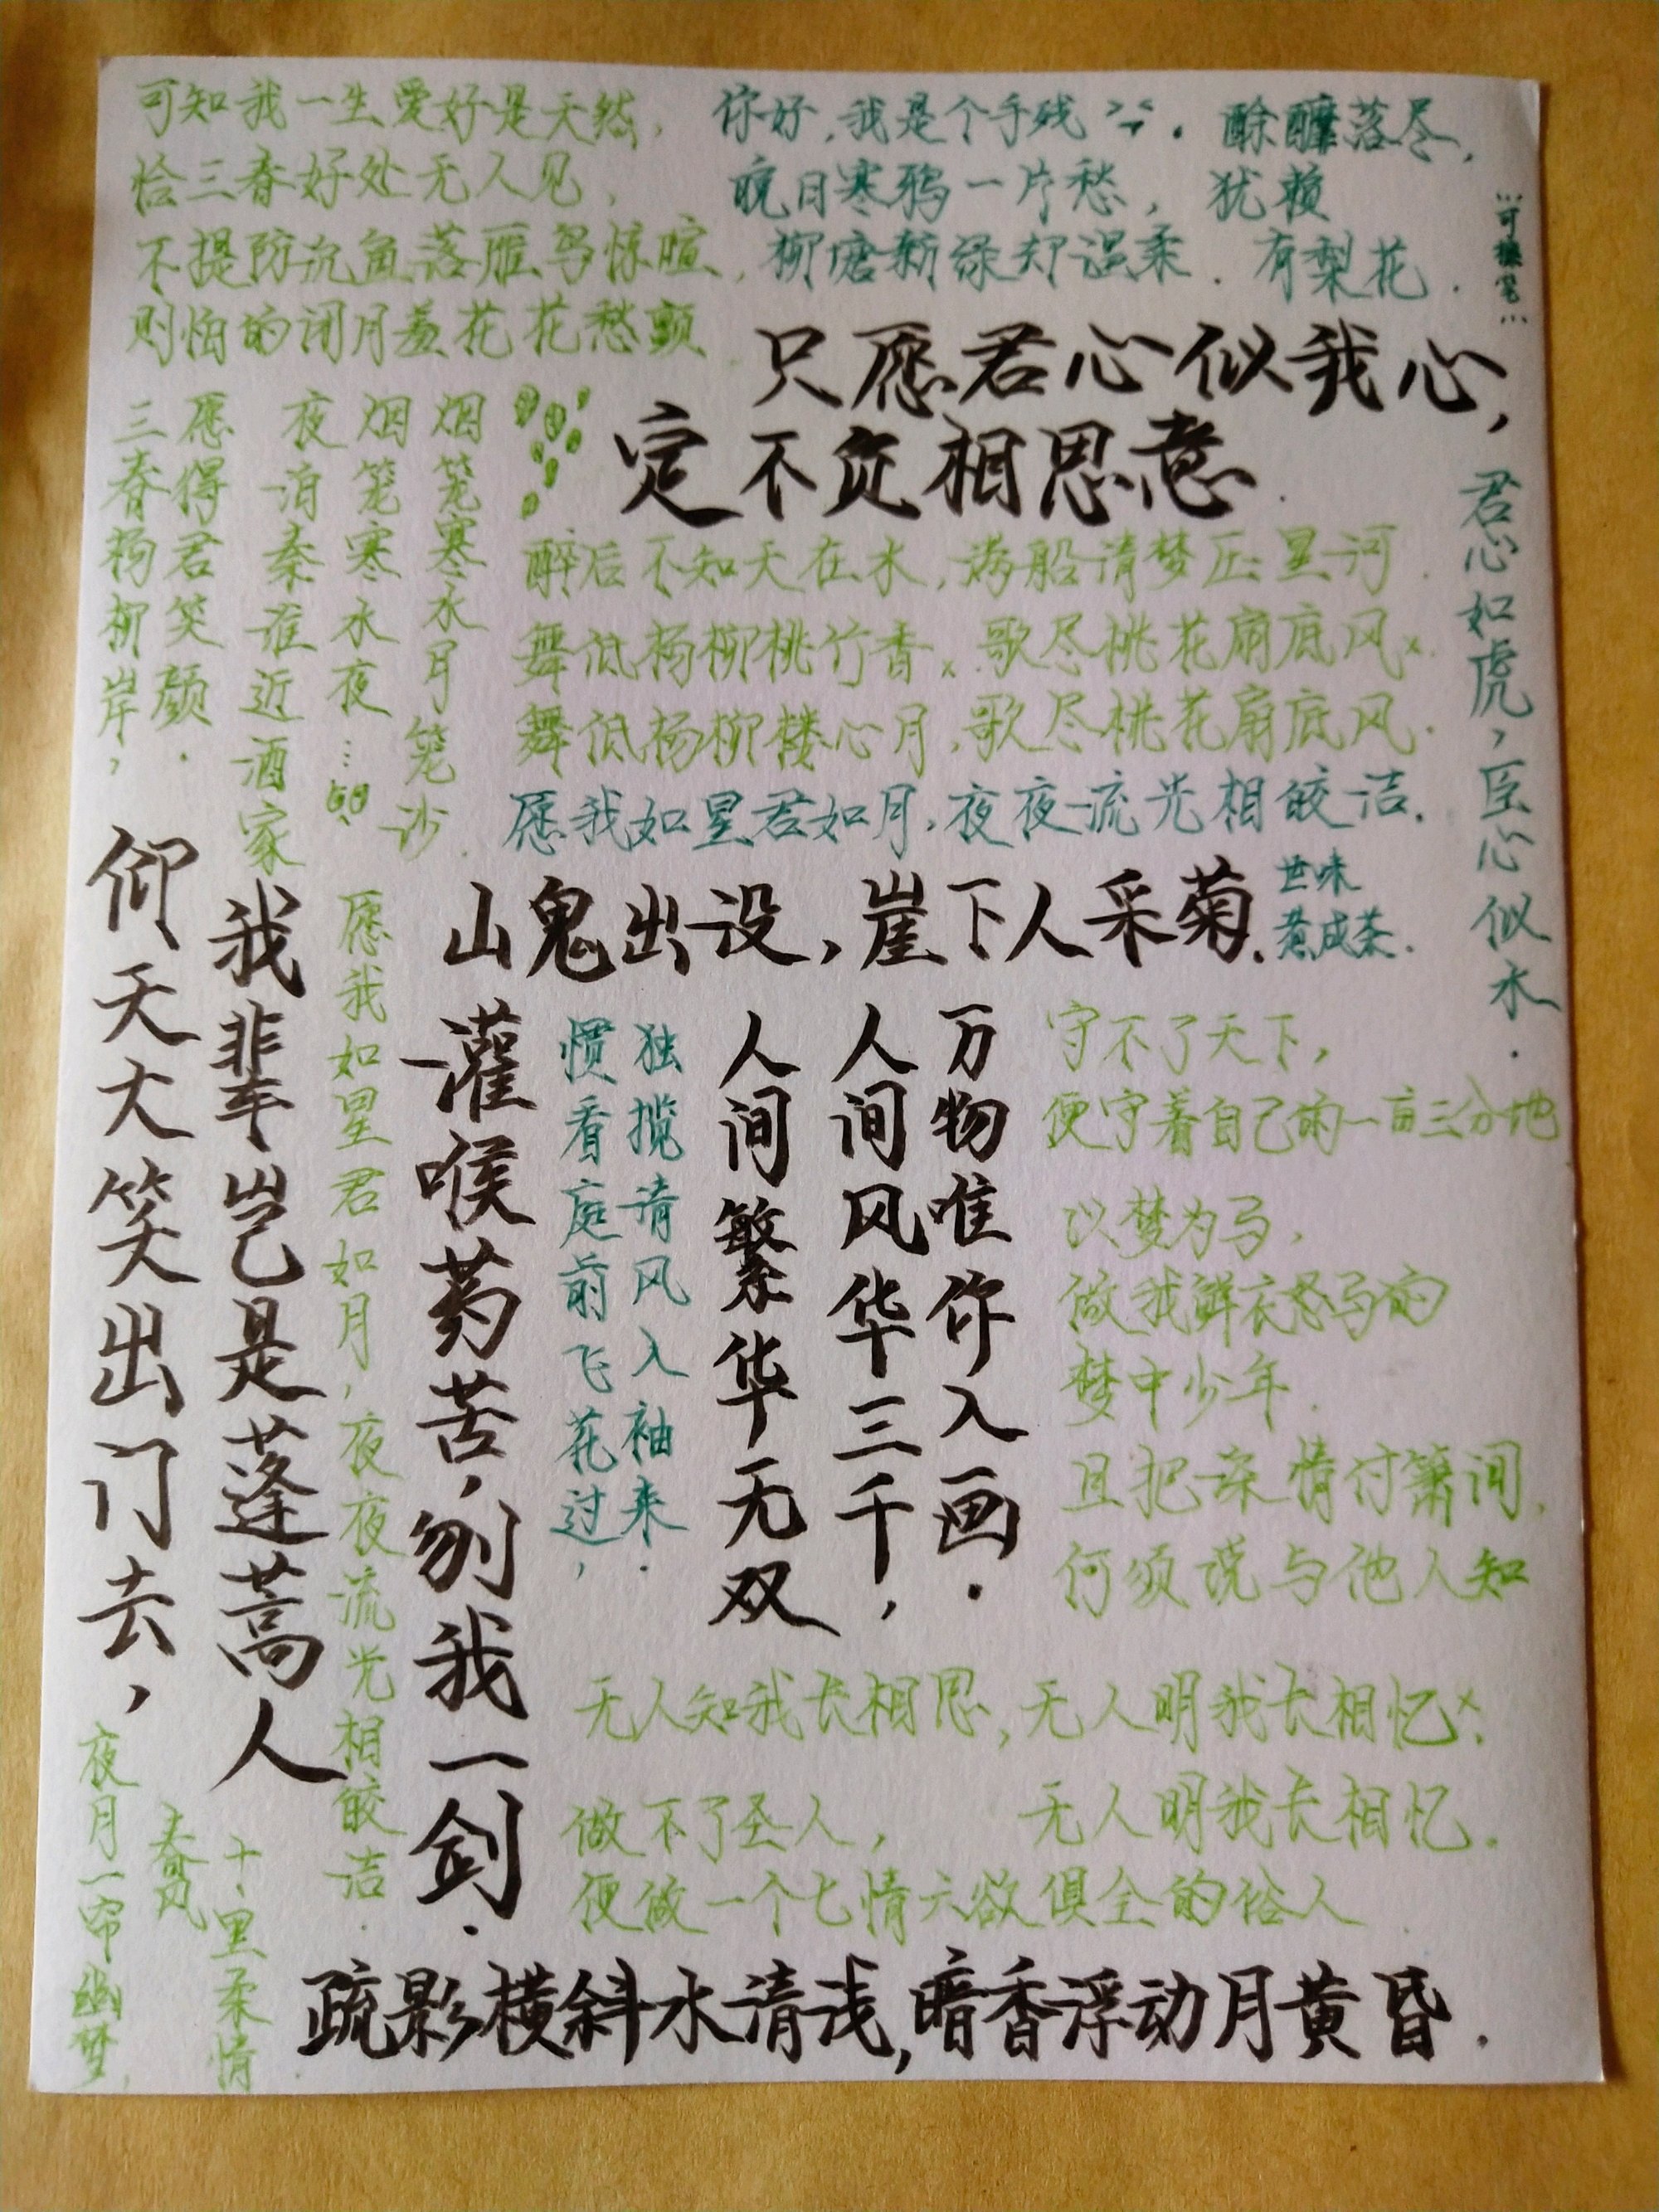 可知我一生爱好是天然，
恰三春好处无人见，
不提防沉鱼落雁鸟惊喧，
则怕的闭月羞花花愁颤
你好，我是个手残
晚日寒鸦一片愁，
柳塘新绿却温柔．
酴醿落尽，
犹赖
有梨花．
只愿君心似我心，
定不负相思意．
君心如虎，臣心似水．
烟笼寒水月笼沙．
烟笼寒水夜…
夜泊秦淮近酒家
三春杨柳岸，
愿得君笑颜．
醉后不知天在水，满船清梦压星河．
舞低杨柳桃竹香×．歌尽桃花扇底风×．
舞低杨柳楼心月，歌尽桃花扇底风．
愿我如星君如月，夜夜流光相皎洁．
山鬼出没，崖下人采菊．
世味
煮成茶．
仰天大笑出门去，
我辈岂是蓬蒿人
愿我如星君如月，夜夜流光相皎洁．
灌喉药苦，刎我一剑．
惯看庭前飞花过，
独揽清风入袖来．
人间繁华无双
人间风华三千，
万物唯你入画．
守不了天下，
便守着自己的一亩三分地
以梦为马，
做我鲜衣怒马的
梦中少年．
且把深情付箫间，
何须说与他人知
无人知我长相思，无人明我长相忆×．
无人明我长相忆．
做不了圣人，
便做一个七情六欲俱全的俗人．
夜月一帘幽梦，
春风
十里柔情
疏影横斜水清浅，暗香浮动月黄昏．